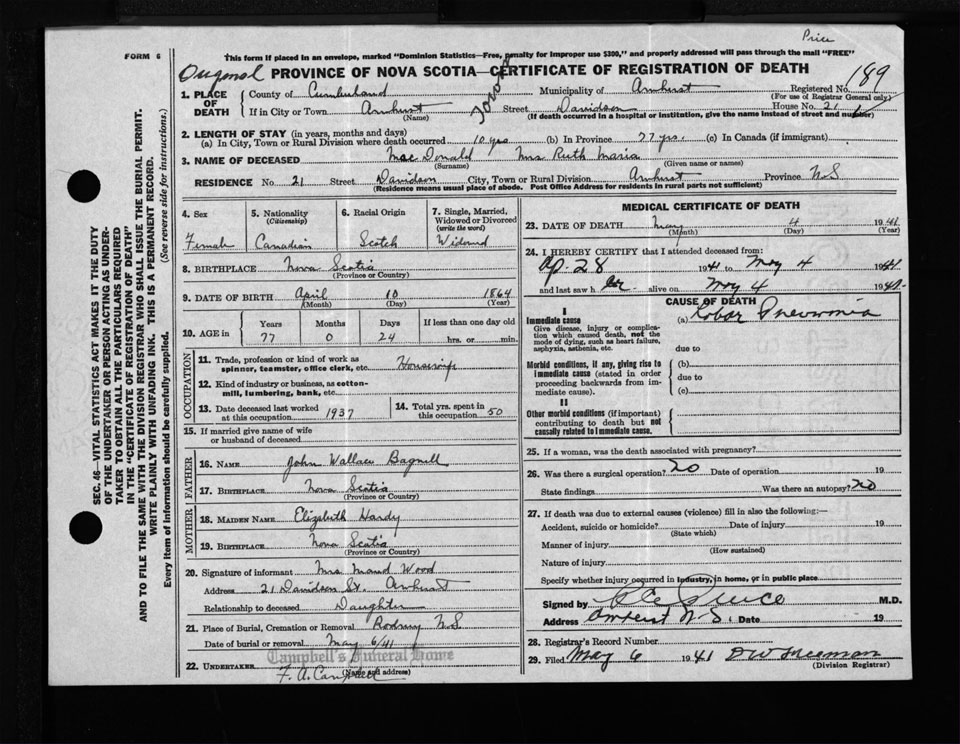 Price
FORM 6
This form if placed in an envelope, marked "Dominion Statistics—Free, penalty for improper use $300," and properly addressed will pass through the mail "FREE"
Original PROVINCE OF NOVA SCOTIA—CERTIFICATE OF REGISTRATION OF DEATH
189
1. PLACE OF DEATH
County of Cumberland Municipality of Amherst Registered No.
(For use of Registrar General only)
If in City or Town Amherst Street Davidson House No. 21
(Name) (If death occurred in a hospital or institution, give the name instead of street and number)
2. LENGTH OF STAY (in years, months and days)
(a) In City, Town or Rural Division where death occurred 10 yrs (b) In Province 77 yrs. (c) In Canada (if immigrant)
3. NAME OF DECEASED MacDonald Mrs Ruth Maria
(Surname) (Given name or names)
RESIDENCE No. 21 Street Davidson City, Town or Rural Division Amherst Province N S
(Residence means usual place of abode. Post Office Address for residents in rural parts not sufficient)
4. Sex
Female
5. Nationality
(Citizenship)
Canadian
6. Racial Origin
Scotch
7. Single, Married, Widowed or Divorced
(write the word)
Widowed
8. BIRTHPLACE Nova Scotia
(Province or Country)
9. DATE OF BIRTH April 10 1864
(Month) (Day) (Year)
10. AGE in
Years Months Days If less than one day old
77 0 24 hrs. or min.
OCCUPATION
11. Trade, profession or kind of work as
spinner, teamster, office clerk, etc. Housewife
12. Kind of industry or business, as cotton-
mill, lumbering, bank, etc.
13. Date deceased last worked
at this occupation 1937
14. Total yrs. spent in
this occupation 50
15. If married give name of wife
or husband of deceased
FATHER
16. NAME John Wallace Bagnell
17. BIRTHPLACE Nova Scotia
(Province or Country)
MOTHER
18. MAIDEN NAME Elizabeth Hardy
19. BIRTHPLACE Nova Scotia
(Province or Country)
20. Signature of informant Mrs Maud Wood
Address 21 Davidson St. Amherst
Relationship to deceased Daughter
21. Place of Burial, Cremation or Removal N S
Date of burial or removal May 6/41
Campbell's Funeral Home
22. UNDERTAKER F. A. Campbell
(Name and address)
MEDICAL CERTIFICATE OF DEATH
23. DATE OF DEATH May 4 1941
(Month) (Day) (Year)
24. I HEREBY CERTIFY that I attended deceased from:
Ap. 28 1941 to May 4 1941
and last saw h er alive on May 4 1941
CAUSE OF DEATH
I
Immediate cause
(a) Lobar Pneumonia
Give disease, injury or complica-
tion which caused death, not the
mode of dying, such as heart failure,
asphyxia, asthenia, etc.
due to
Morbid conditions, if any, giving rise to
immediate cause (stated in order
proceeding backwards from im-
mediate cause).
(b)
due to
(c)
II
Other morbid conditions (if important)
contributing to death but not
causally related to immediate cause.
25. If a woman, was the death associated with pregnancy?
26. Was there a surgical operation? No Date of operation 19
State findings Was there an autopsy? No
27. If death was due to external causes (violence) fill in also the following:—
Accident, suicide or homicide? Date of injury 19
(State which)
Manner of injury
(How sustained)
Nature of injury
Specify whether injury occurred in industry, in home, or in public place
Signed by M.D.
Address Amherst N. S. Date 19
28. Registrar's Record Number
29. Filed May 6 1941 D W Freeman
(Division Registrar)
SEC. 46—VITAL STATISTICS ACT MAKES IT THE DUTY
OF THE UNDERTAKER OR PERSON ACTING AS UNDER-
TAKER TO OBTAIN ALL THE PARTICULARS REQUIRED
IN THE "CERTIFICATE OF REGISTRATION OF DEATH"
AND TO FILE THE SAME WITH THE DIVISION REGISTRAR WHO SHALL ISSUE THE BURIAL PERMIT.
WRITE PLAINLY WITH UNFADING INK. THIS IS A PERMANENT RECORD.
Every item of information should be carefully supplied. (See reverse side for instructions.)